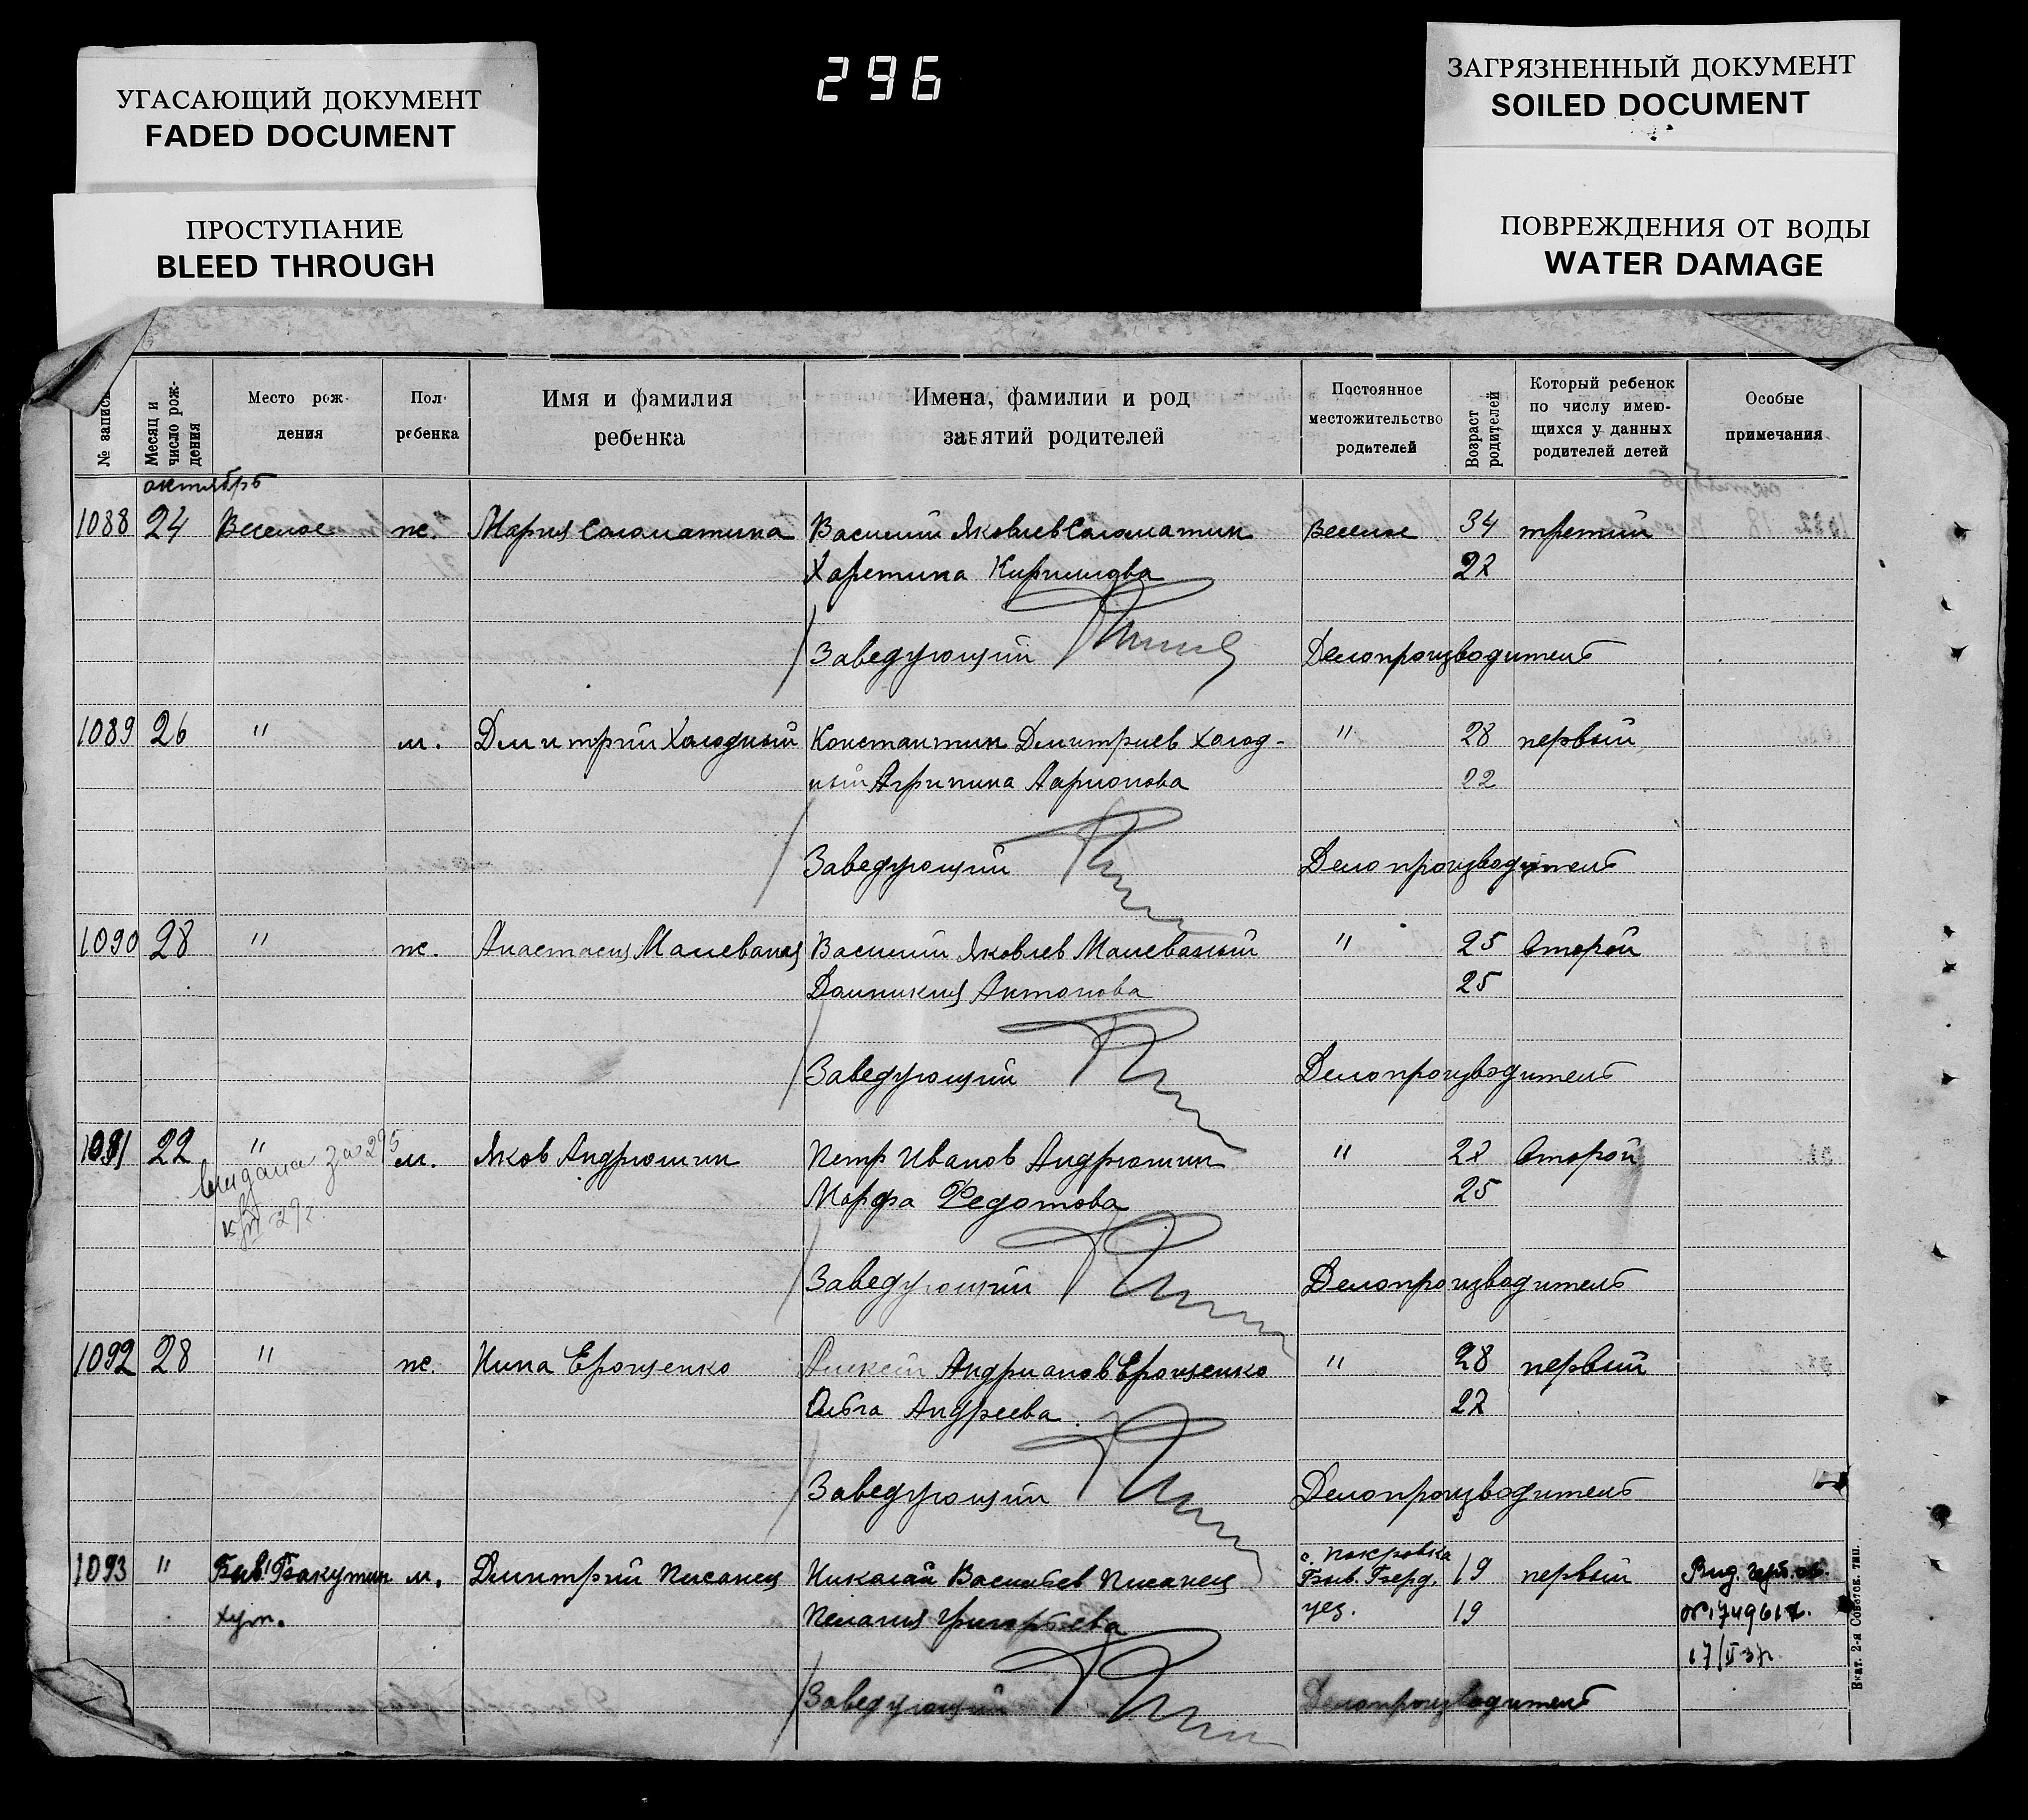 296
УГАСАЮЩИЙ ДОКУМЕНТ
FADED DOCUMENT
ПРОСТУПАНИЕ
BLEED THROUGH
ЗАГРЯЗНЕННЫЙ ДОКУМЕНТ
SOILED DOCUMENT
ПОВРЕЖДЕНИЯ ОТ ВОДЫ
WATER DAMAGE
№ записи
Месяц и число рож-дения
Место рож-дения
Пол ребенка
Имя и фамилия ребенка
Имена, фамилии и род занятий родителей
Постоянное местожительство родителей
Возраст родителей
Который ребенок по числу имею-щихся у данных родителей детей
Особые примечания
октябрь
1088 24 Веселое ж. Мария Соломатина Василий Яковлев Соломатин Веселое 34 третий
Харетина Кириллова 22
Заведующий Делопроизводитель
1089 26 " м. Димитрий Холодный Константин Димитриев Холод- " 28 первый
ный Агрипина Ларионова 22
Заведующий Делопроизводитель
1090 28 " ж. Анастасия Малеваная Василий Яковлев Малеваный " 25 второй
Домникия Антонова 25
Заведующий Делопроизводитель
1091 22 " м. Яков Андрюшин Петр Иванов Андрюшин " 27 второй
выдана за 295
Марфа Федотова 25
Заведующий Делопроизводитель
1092 28 " ж. Нина Ерощенко Алексей Андрианов Ерощенко " 28 первый
Ольга Андреева 27
Заведующий Делопроизводитель
1093 " Быв. Бакутин м. Димитрий Писанец Николай Васильев Писанец с. Покровка Быв. Берд. 19 первый
хут. Пелагия Григорьева уез. 19
Заведующий Делопроизводитель
Вкат. 2-я Советск. тип.